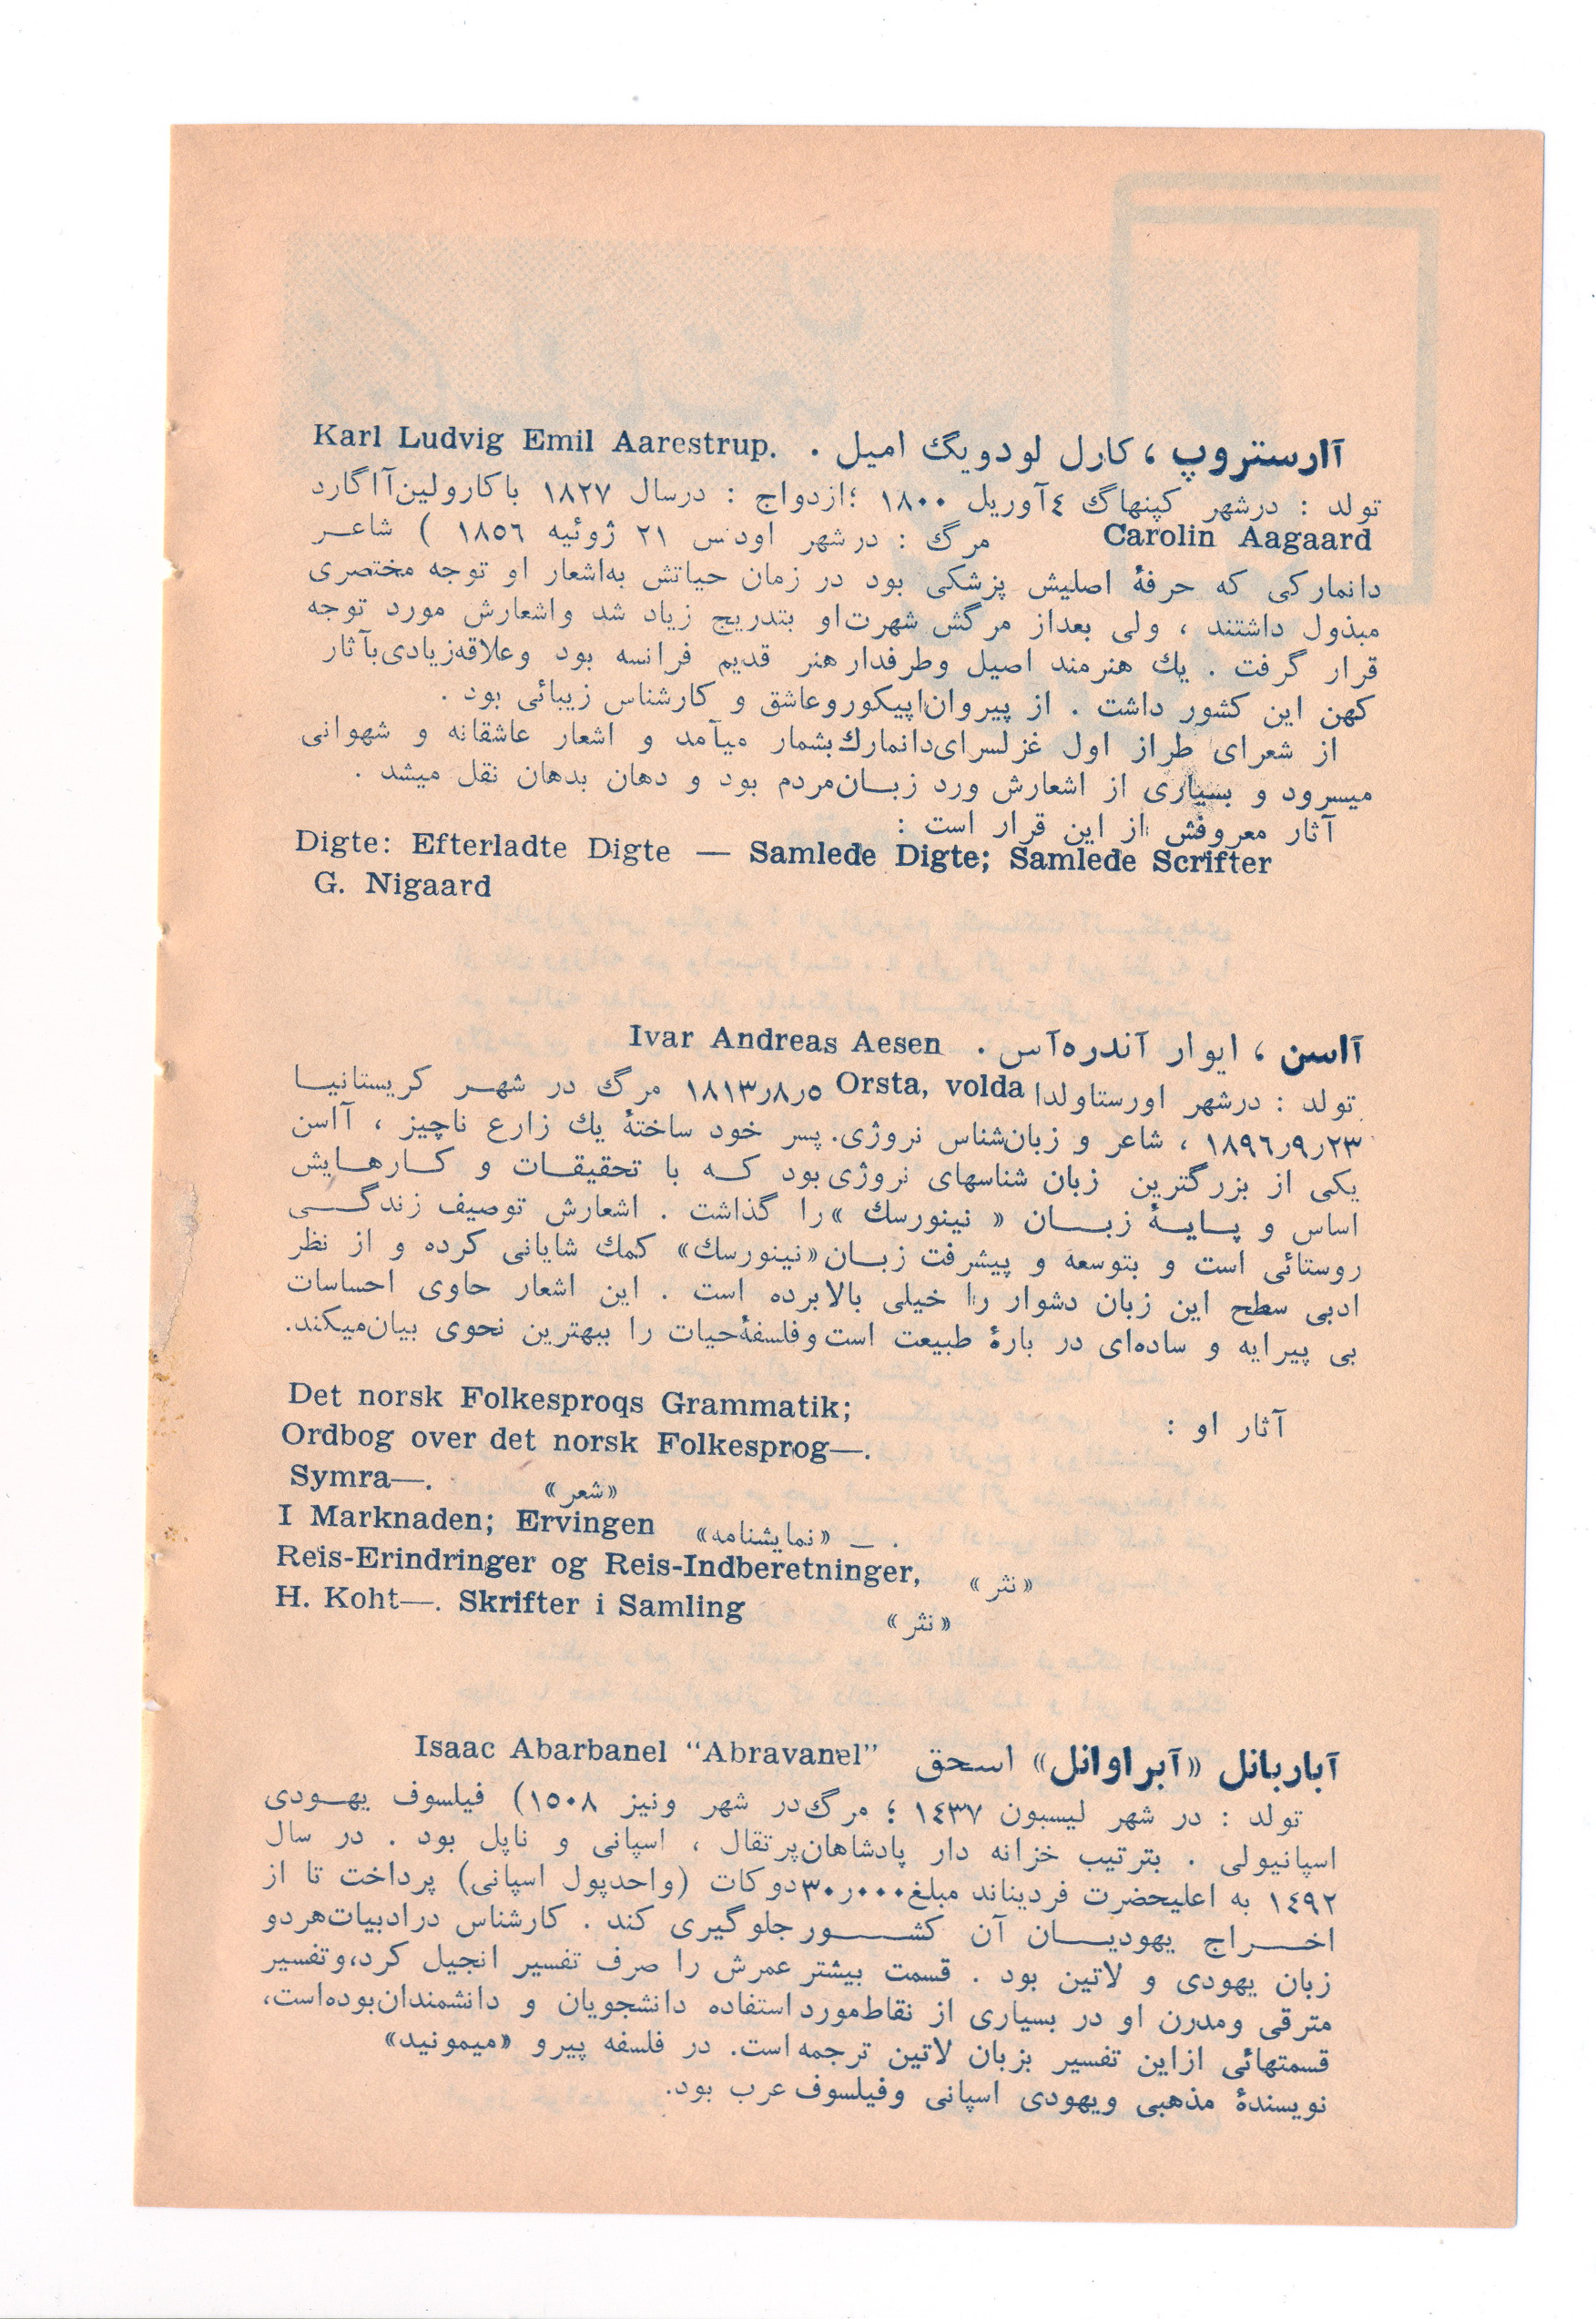 آارستروپ ، کارل لودویگ امیل . Karl Ludvig Emil Aarestrup.
تولد : درشهر کپنهاگ ٤آوریل ١٨٠٠ ؛ازدواج : درسال ١٨٢٧ باکارولین‌آاگارد
Carolin Aagaard مرگ : درشهر اودنس ٢١ ژوئیه ١٨٥٦ ) شاعر
دانمارکی که حرفهٔ اصلیش پزشکی بود در زمان حیاتش به‌اشعار او توجه مختصری
مبذول داشتند ، ولی بعداز مرگش شهرت‌او بتدریج زیاد شد واشعارش مورد توجه
قرار گرفت . یك هنرمند اصیل وطرفدار هنر قدیم فرانسه بود وعلاقه‌زیادی‌بآثار
کهن این کشور داشت . از پیروان‌اپیکوروعاشق و کارشناس زیبائی بود .
از شعرای طراز اول غزلسرای‌دانمارك‌بشمار میآمد و اشعار عاشقانه و شهوانی
میسرود و بسیاری از اشعارش ورد زبان‌مردم بود و دهان بدهان نقل میشد .
آثار معروفش از این قرار است :
Digte: Efterladte Digte — Samlede Digte; Samlede Scrifter
G. Nigaard
آاسن ، ایوار آندره‌آس . Ivar Andreas Aesen
تولد : درشهر اورستاولدا Orsta, volda ٥ر٨ر١٨١٣ مرگ در شهر کریستانیا
٢٣ر٩ر١٨٩٦ ، شاعر و زبان‌شناس نروژی. پسر خود ساختهٔ یك زارع ناچیز ، آاسن
یکی از بزرگترین زبان شناسهای نروژی‌بود که با تحقیقات و کارهایش
اساس و پایهٔ زبان « نینورسك »را گذاشت . اشعارش توصیف زندگی
روستائی است و بتوسعه و پیشرفت زبان«نینورسك» کمك شایانی کرده و از نظر
ادبی سطح این زبان دشوار را خیلی بالابرده است . این اشعار حاوی احساسات
بی پیرایه و ساده‌ای در بارهٔ طبیعت است‌وفلسفهٔ‌حیات را ببهترین نحوی بیان‌میکند.
آثار او : Det norsk Folkesproqs Grammatik;
Ordbog over det norsk Folkesprog—.
Symra—. «شعر»
I Marknaden; Ervingen «نمایشنامه» — .
Reis-Erindringer og Reis-Indberetninger, « نثر »
H. Koht—. Skrifter i Samling « نثر »
آباربانل «آبراوانل» اسحق Isaac Abarbanel “Abravanel”
تولد : در شهر لیسبون ١٤٣٧ ؛ مرگ‌در شهر ونیز ١٥٠٨) فیلسوف یهودی
اسپانیولی . بترتیب خزانه دار پادشاهان‌پرتقال ، اسپانی و ناپل بود . در سال
١٤٩٢ به اعلیحضرت فردیناند مبلغ٣٠ر٠٠٠دوکات (واحدپول اسپانی) پرداخت تا از
اخراج یهودیان آن کشور جلوگیری کند . کارشناس درادبیات‌هردو
زبان یهودی و لاتین بود . قسمت بیشتر عمرش را صرف تفسیر انجیل کرد،وتفسیر
مترقی ومدرن او در بسیاری از نقاط‌مورد استفاده دانشجویان و دانشمندان‌بوده‌است،
قسمتهائی ازاین تفسیر بزبان لاتین ترجمه‌است. در فلسفه پیرو «میمونید»
نویسندهٔ مذهبی ویهودی اسپانی وفیلسوف عرب بود.